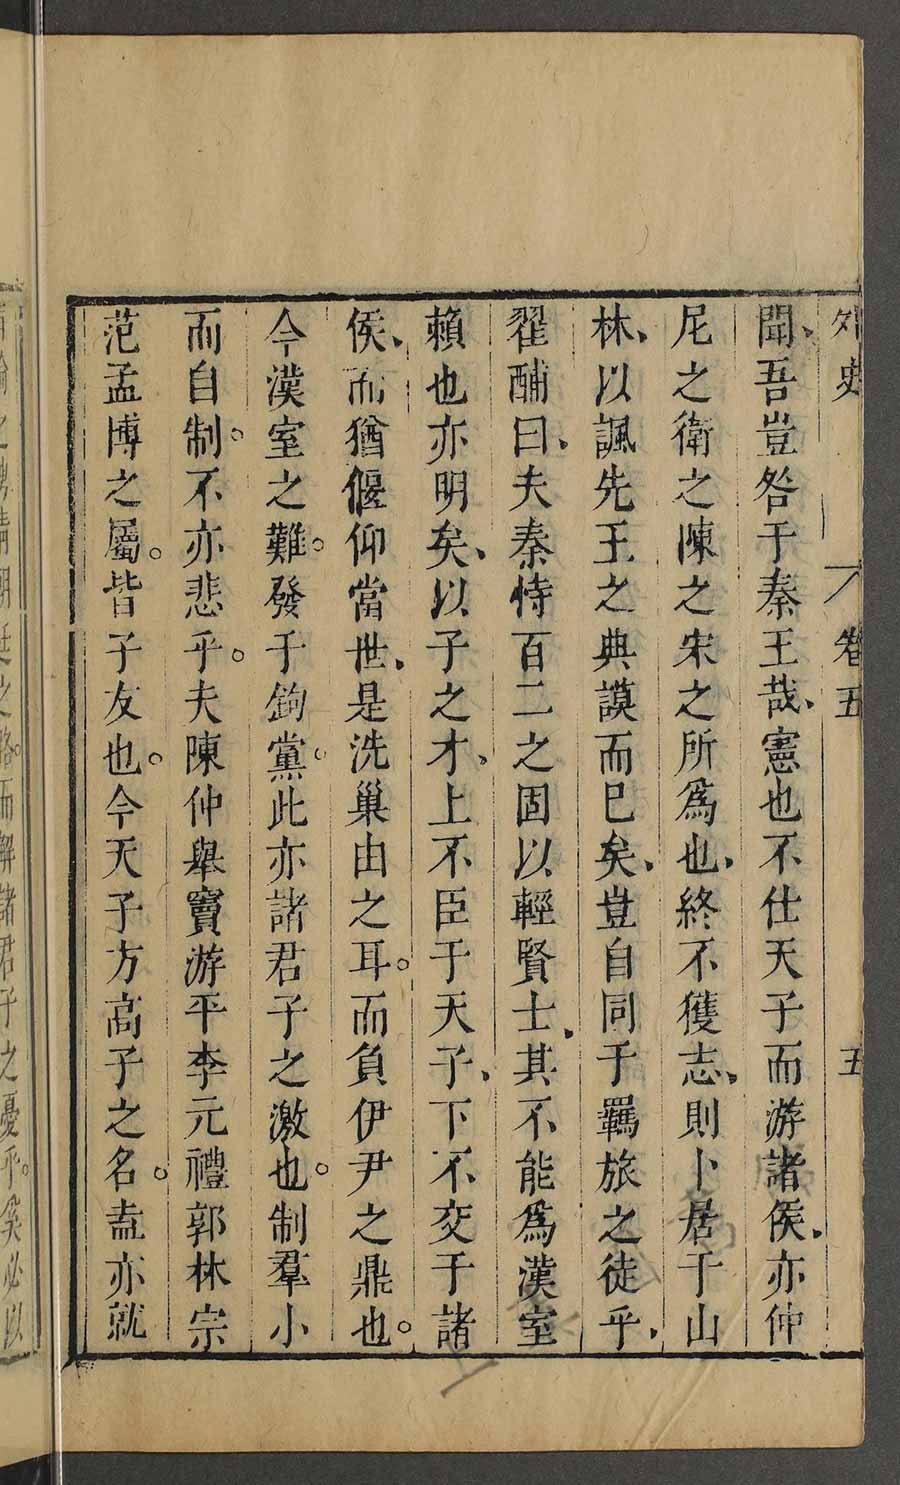 外史 卷五 五
聞、吾豈咎于秦王哉、憲也不仕天子而游諸侯、亦仲
尼之衛之陳之宋之所爲也、終不獲志、則卜居于山
林、以諷先王之典謨而已矣、豈自同于羈旅之徒乎、
翟酺曰、夫秦恃百二之固以輕賢士、其不能爲漢室
賴也亦明矣、以子之才、上不臣于天子、下不交于諸
侯、而猶偃仰當世、是洗巢由之耳。而負伊尹之鼎也。
今漢室之難。發于鉤黨。此亦諸君子之激也。制羣小
而自制。不亦悲乎。夫陳仲舉竇游平李元禮郭林宗
范孟博之屬。皆子友也。今天子方高子之名。盍亦就
之 朝廷之 而解諸君子之憂乎。奚必以